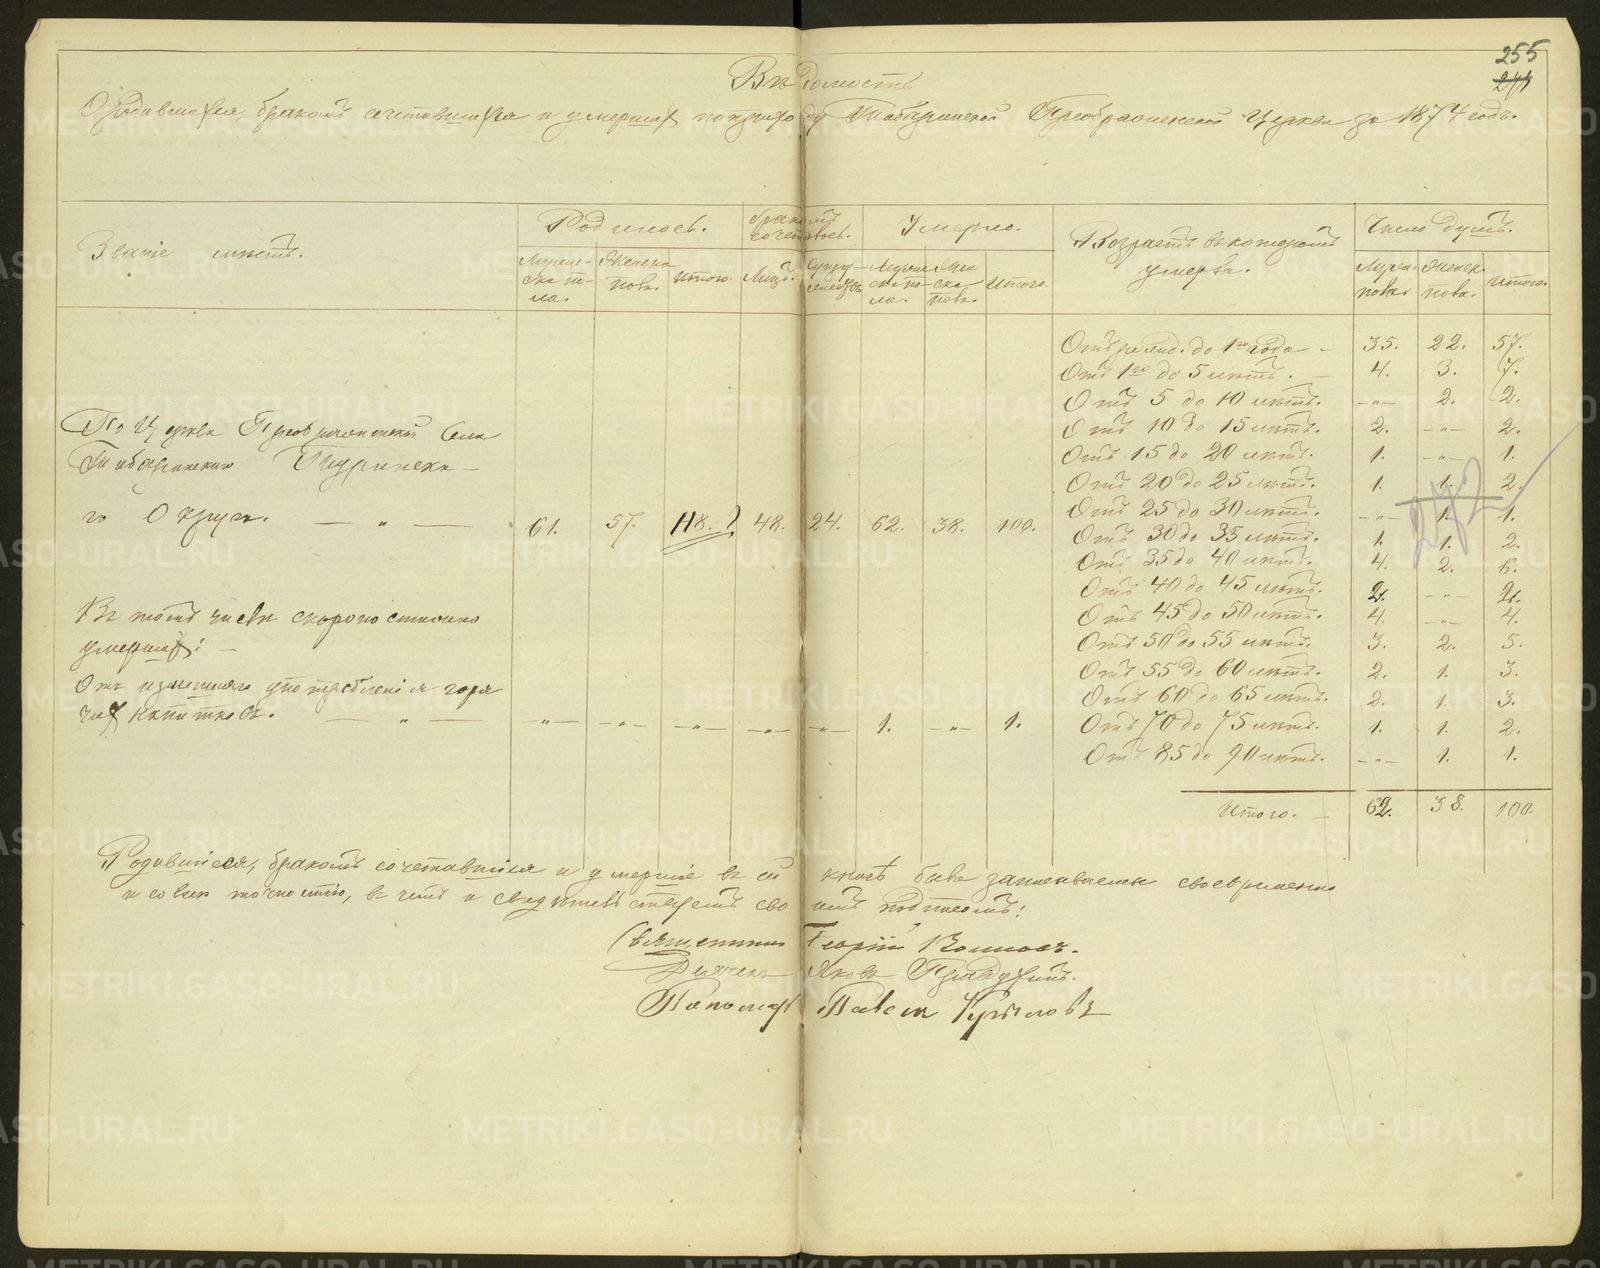 255
244
Вѣдомость
О родившихся, бракомъ сочетавшихся и умершихъ по приходу Табаринской Преображенской Церкви за 1874 годъ.
Званіе мѣстъ.
Родилось.
Бракомъ сочеталось.
Умерло.
Возрастъ въ которомъ умерли.
Число душъ.
Мужеска пола. Женска пола. Итого. Лицъ. Супружествъ. Мужеска пола. Женска пола. Итого. Мужск. пола. Женск. пола. Итого.
Отъ рожд. до 1го года 35. 22. 57.
Отъ 1го до 5 лѣтъ. 4. 3. 7.
Отъ 5 до 10 лѣтъ. —„— 2. 2.
Отъ 10 до 15 лѣтъ. 2. —„— 2.
Отъ 15 до 20 лѣтъ. 1. —„— 1.
Отъ 20 до 25 лѣтъ. 1. 1. 2.
Отъ 25 до 30 лѣтъ. —„— 1. 1.
Отъ 30 до 35 лѣтъ. 1. 1. 2.
Отъ 35 до 40 лѣтъ. 4. 2. 6.
Отъ 40 до 45 лѣтъ. 2. —„— 2.
Отъ 45 до 50 лѣтъ. 4. —„— 4.
Отъ 50 до 55 лѣтъ. 3. 2. 5.
Отъ 55 до 60 лѣтъ. 2. 1. 3.
Отъ 60 до 65 лѣтъ. 2. 1. 3.
Отъ 70 до 75 лѣтъ. 1. 1. 2.
Отъ 85 до 90 лѣтъ. —„— 1. 1.
Итого. 62. 38. 100.
По Церкви Преображенской Села
Табаринскаго Туринска-
го Округа. — „ — 61. 57. 118. 48. 24. 62. 38. 100.
Въ томъ числѣ скоропостижно
умершихъ: —
Отъ излишняго употребленія горя
чихъ напитковъ. — „ — —„— —„— —„— —„— —„— 1. —„— 1.
Родившіеся, бракомъ сочетавшіеся и умершіе въ сей книгѣ были записываемы своевременно
и со всею точностію, въ чемъ и свидѣтельствуемъ своимъ подписомъ:
Священникъ Георгій
Дьячекъ Яковъ
Пономарь Павелъ Крыловъ
METRIKI.GASO-URAL.RU